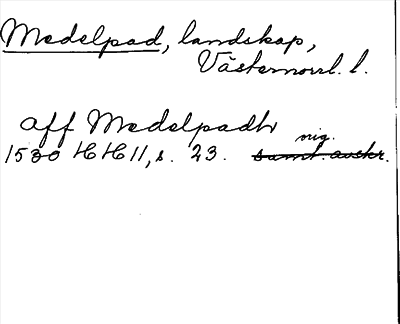 Medelpad, landskap,
Västernorrl. l.
aff Medelpadh
orig.
1530 HH 11, s. 23. samt. avskr.